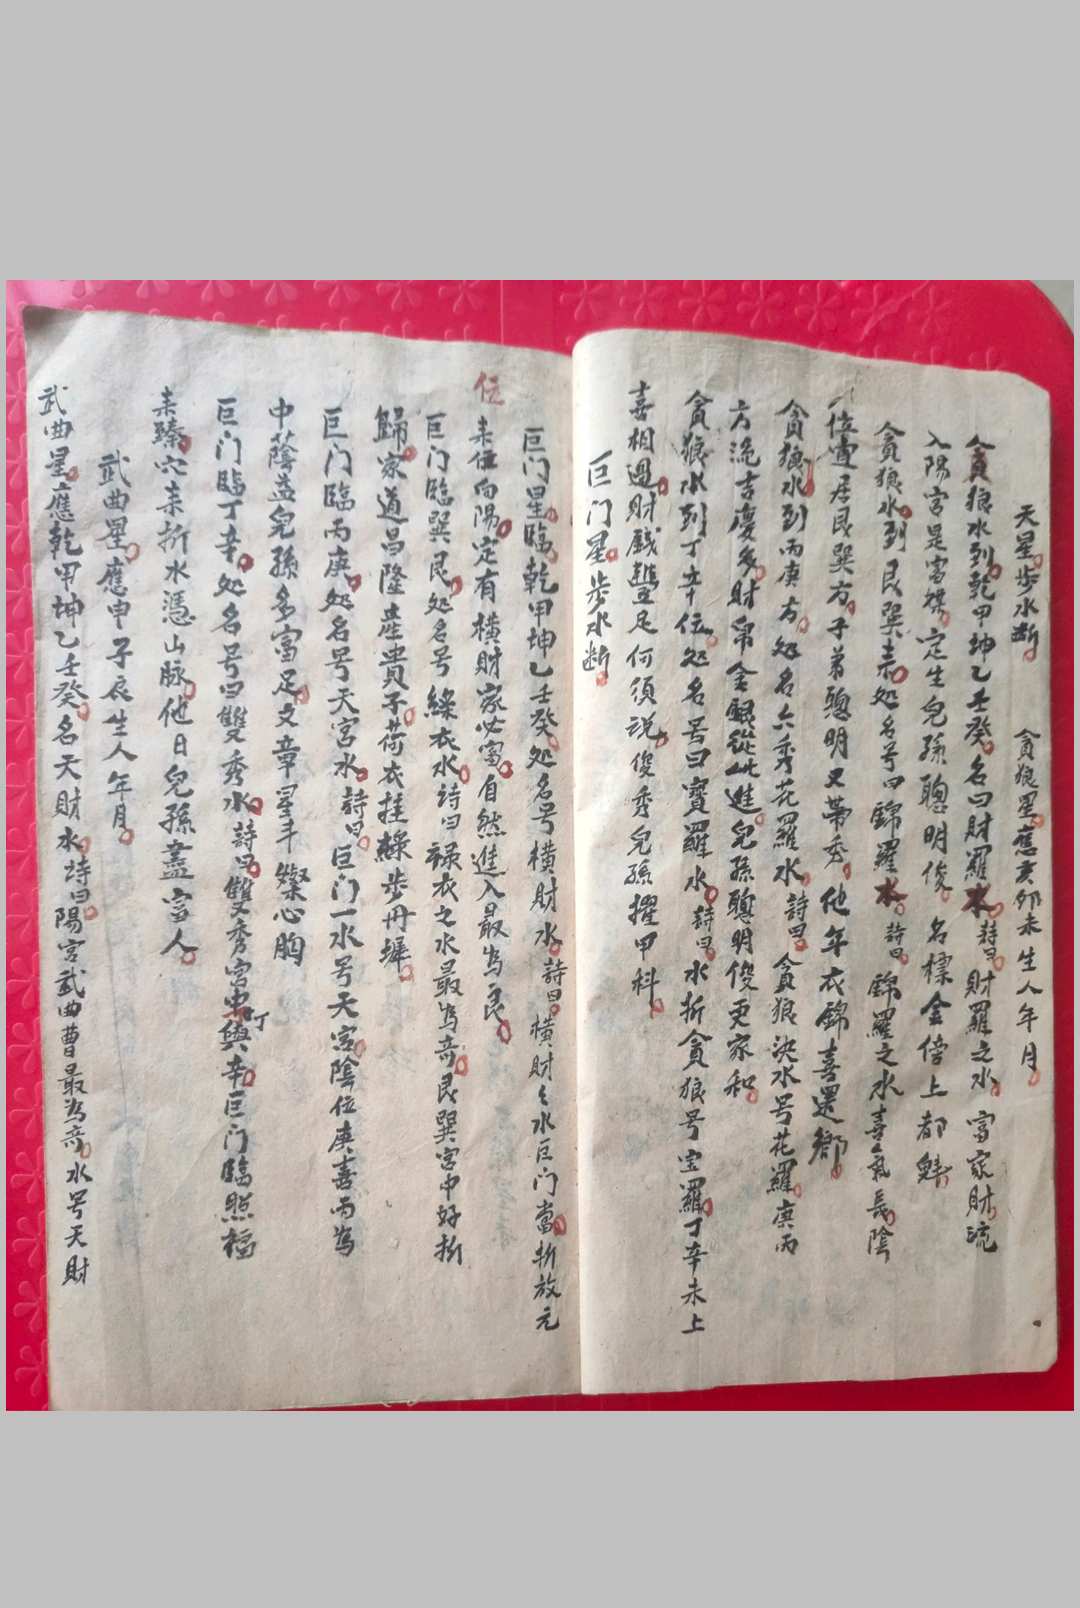 天星步水断 貪狼星應亥卯未生人年月
貪狼水到乾甲坤乙壬癸名曰財羅水詩曰財羅之水富家財流
入陽宮是富禖定生兒孫聰明俊名標金傍上都魁
貪狼水到艮巽来处名号曰錦羅水詩曰錦羅之水喜氣長陰
位重居艮巽方子弟聰明又带秀他年衣錦喜還鄉
貪狼水到丙庚方处名六秀花羅水詩曰貪狼决水号花羅庚丙
方流吉慶多財帛金銀從此進兒孫聰明俊更家和
貪狼水到丁辛位处名号曰寶羅水詩曰水折貪狼号宝羅丁辛未上
喜相過財錢豐足何須説俊秀兒孫擢甲科
巨门星步水断
巨门星臨乾甲坤乙壬癸处名号横財水詩曰横財之水巨门當斬放元
来位向陽定有横財家必富自然進入最为良
位
巨门臨巽艮处名号綠衣水詩曰禄衣之水最为奇艮巽宮中好折
歸家道昌隆産貴子荷衣挂綠步丹墀
巨门臨丙庚处名号天宮水詩曰巨门一水号天宮陰位庚喜丙为
中蔭益兒孫多富足文章星斗燦心胸
巨门臨丁辛处名号曰雙秀水詩曰雙秀宮中丁與辛巨门臨照福
来臻穴来折水憑山脉他日兒孫盡富人
武曲星應申子辰生人年月
武曲星應乾甲坤乙壬癸名天財水詩曰陽宮武曲曹最为奇水号天財